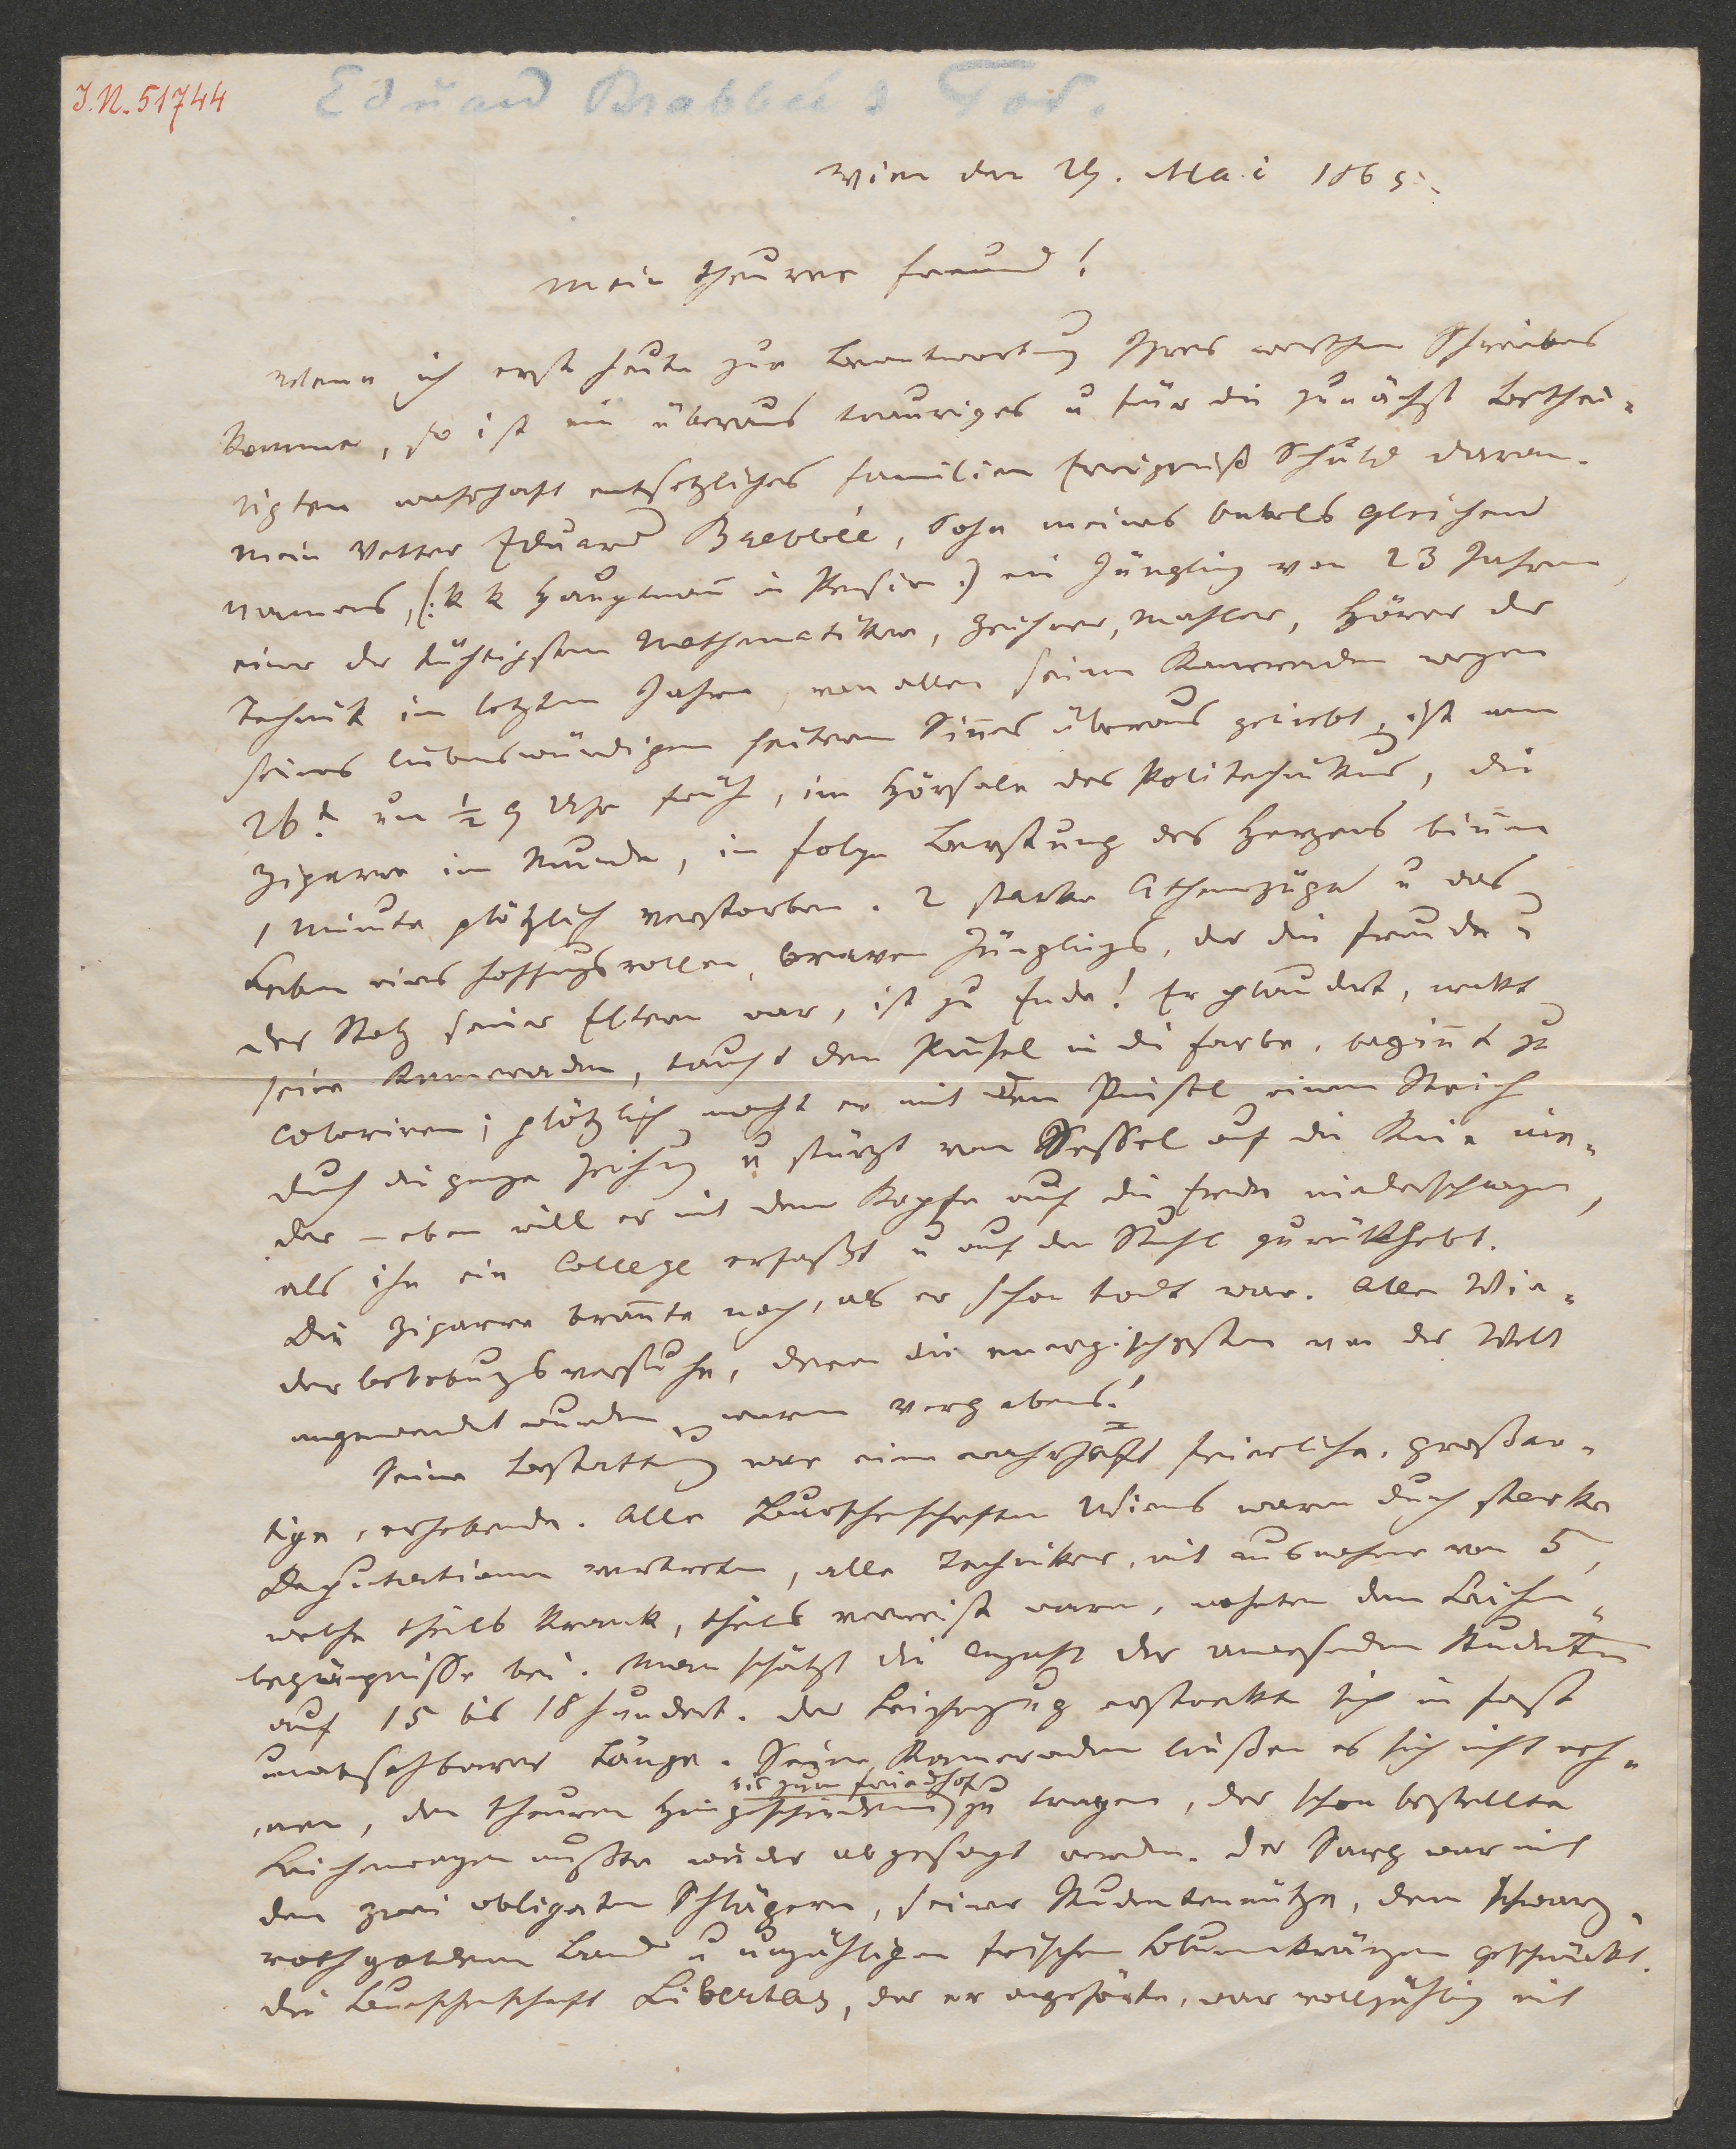 J.N. 51744
Eduard Brabbée's Tod.
Wien den 29. Mai 1865.
Mein theurer Freund!
Wenn ich erst heute zur Beantwortung Ihres werthen Schreibens
komme, so ist ein überaus trauriges u für die zunächst Bethei-
ligten wahrhaft entsetzliches Familien Ereigniß Schuld daran.
Mein Vetter Eduard Brabbée, Sohn meines Onkels gleichen
Namens, (: k k Hauptmañ in Pension :) ein Jüngling von 23 Jahren,
einer der tüchtigsten Mathematiker, Zeichner, Mahler, Hörer der
Technik im letzten Jahre, von allen seinen Kameraden wegen
seines liebenswürdigen heitern Siñes überaus geliebt, ist am
26t um ½ 9 Uhr früh, im Hörsale des Politechnikums, die
Zigarre im Munde, in Folge Berstung des Herzens biñen
1 Minute plötzlich verstorben. 2 starke Athemzüge u das
Leben eines hoffnungsvollen, braven Jünglings, der die Freude u
der Stolz seiner Eltern war, ist zu Ende! Er plaudert, nekt
seine Kameraden, taucht den Pinsel in die Farbe, begiñt zu
coloriren; plötzlich macht er mit dem Pinsel einen Strich
durch die ganze Zeichnung u stürzt vom Sessel auf die Knie nie-
der – eben will er mit dem Kopfe auf die Erde niederschlagen,
als ihn ein College erfaßt u auf den Stuhl zurükhebt.
Die Zigarre brañte noch, als er schon todt war. Alle Wie-
derbelebungsversuche, deren die energischesten von der Welt
angewendet wurden, waren vergebens!
Seine Bestattung war eine wahrhaft feierliche, großar-
tige, erhebende. Alle Burschenschaften Wiens waren durch starke
Deputationen vertreten, alle Techniker, mit Ausnahme von 5,
welche theils krank, theils verreist waren, wohnten dem Leichen-
begängnisse bei. Man schätzt die Anzahl der anwesenden Studenten
auf 15 bis 18 hundert. Der Leichenzug erstrekte sich in fast
unabsehbarer Länge. Seine Kameraden ließen es sich nicht neh-
bis zum Friedhof
men, den theuren Hingeschiedenen zu tragen, der schon bestellte
Leichenwagen mußte wieder abgesagt werden. Der Sarg war mit
den zwei obligaten Schlägern, seiner Studentenmütze, dem schwarz-
rothgoldenen Band u unzähligen frischen Blumenkränzen geschmückt.
Die Burschenschaft Libertas, der er angehörte, war vollzählig mit